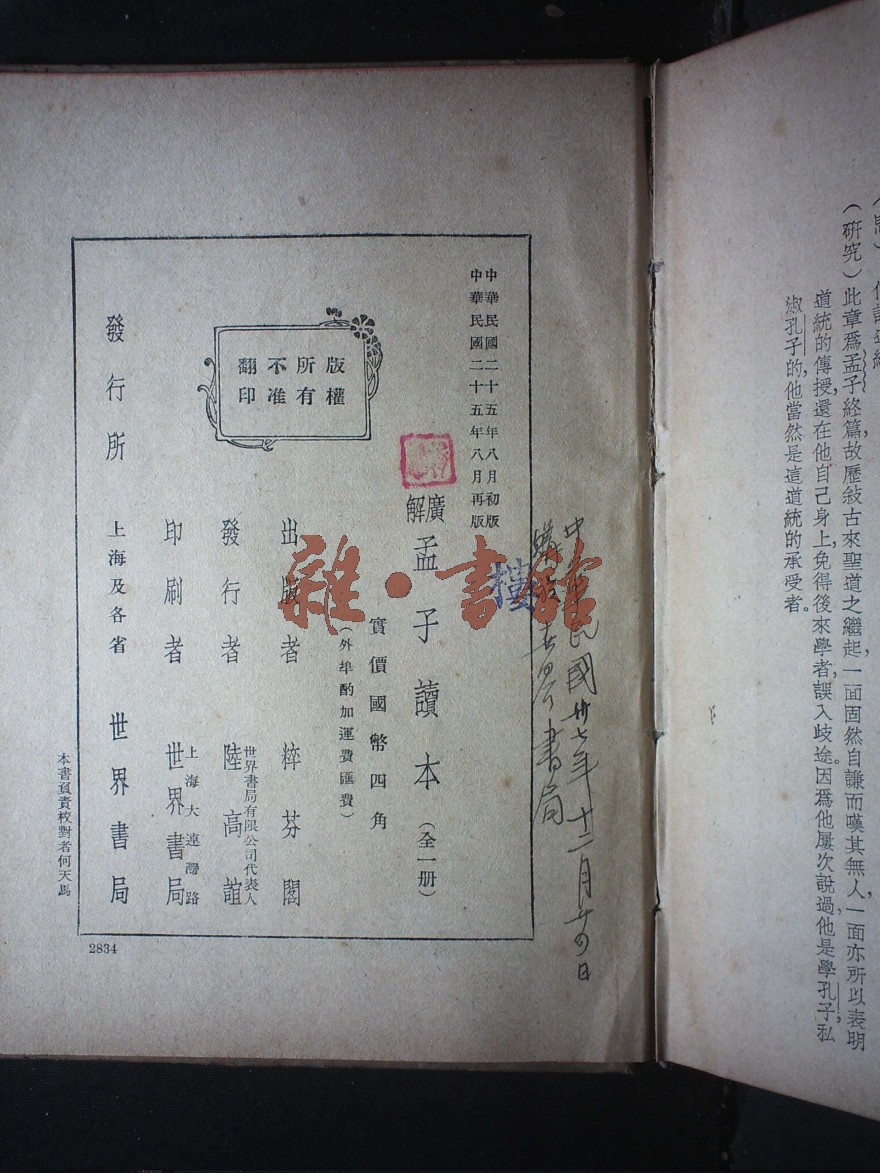 （研究）此章爲孟子終篇，故歷敍古來聖道之繼起，一面固然自謙而嘆其無人，一面亦所以表明
道統的傳授還在他自己身上，免得後來學者，誤入歧途。因爲他屢次說過，他是學孔子，私
淑孔子的，他當然是這道統的承受者。
中華民國廿七年十二月
書局
中華民國二十五年八月初版
中華民國二十五年八月再版
廣解
孟子讀本（全一册）
實價國幣四角
（外埠酌加運費匯費）
版權
所有
不准
翻印
出版者 粹芬閣
發行者 世界書局有限公司代表人 陸高誼
印刷者 上海大連灣路 世界書局
發行所 上海及各省 世界書局
本書負責校對者何天馬
2834
雜·書館
樓